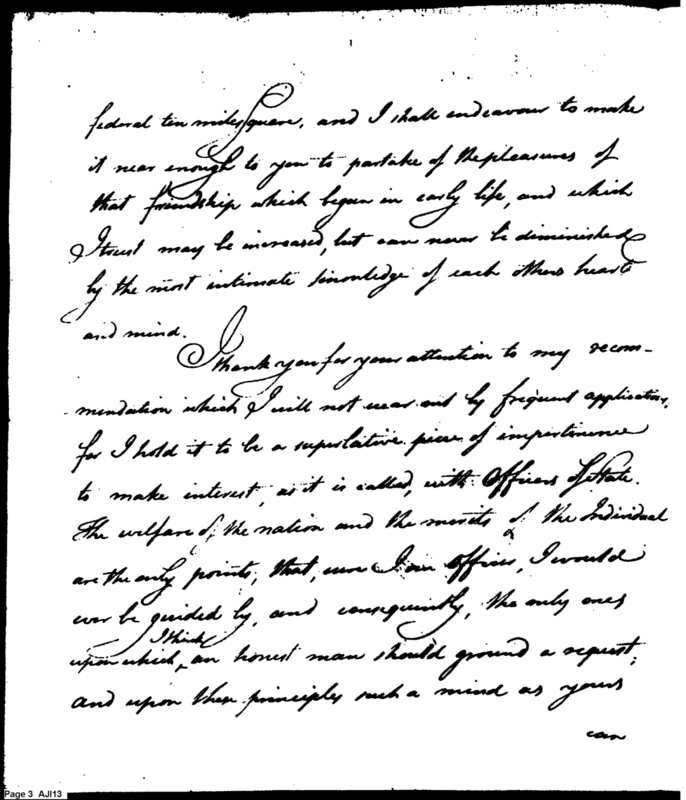 federal ten miles square, and I shall endeavour to make
it near enough to you to partake of the pleasures of
that friendship which began in early life, and which
I trust may be increased, but can never be diminished
by the most intimate knowledge of each others hearts
and mind.
I thank you for your attention to my recom-
mendation which I will not wear out by frequent applications,
for I hold it to be a superlative piece of impertinence
to make interest, as it is called, with Officers of State.
The welfare of the nation and the merits of the Individual
are the only points, that, were I an Officer, I would
ever be guided by, and consequently, the only ones
I think
upon which an honest man should ground a request;
and upon these principles such a mind as yours
can
Page 3 AJI13